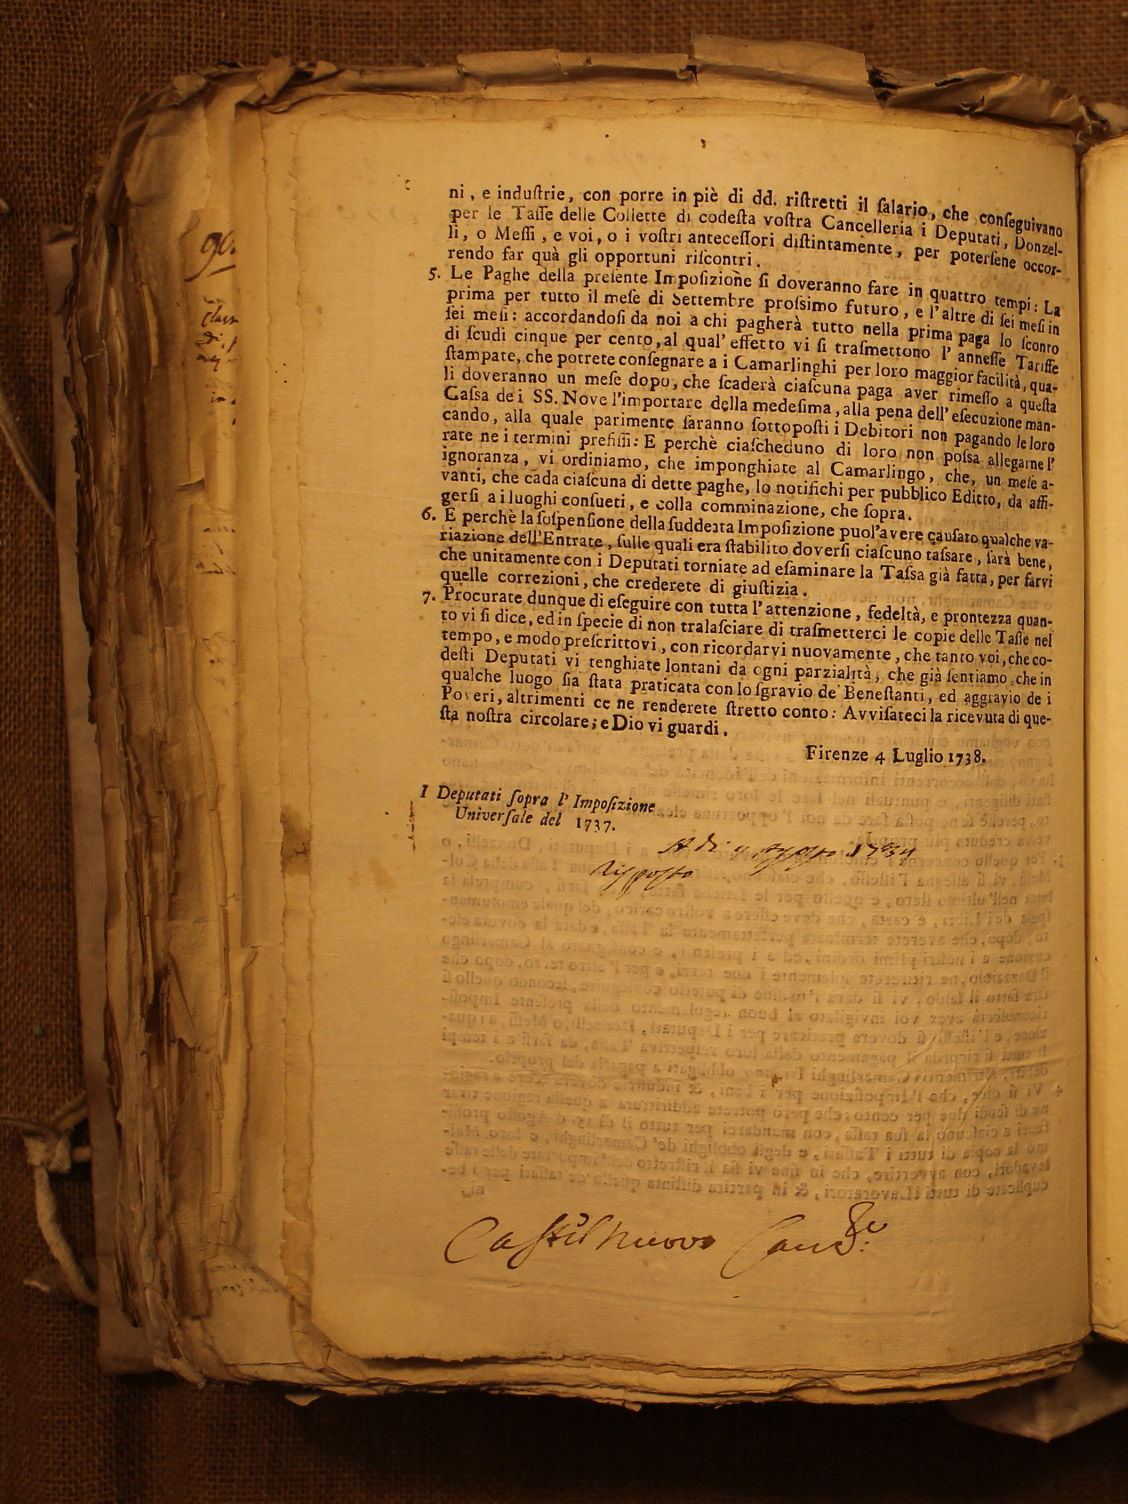 ni, e induſtrie, con porre in piè di dd. riſtretti il ſalario, che conſeguivano
per le Taſſe delle Collette di codeſta voſtra Cancelleria i Deputati, Donzel-
li, o Meſſi, e voi, o i voſtri anteceſſori diſtintamente, per poterſene occor-
rendo far quà gli opportuni riſcontri.
5. Le Paghe della preſente Impoſizione ſi doveranno fare in quattro tempi: La
prima per tutto il meſe di Settembre proſſimo futuro, e l'altre di ſei meſi in
ſei meſi: accordandoſi da noi a chi pagherà tutto nella prima paga lo ſconto
di ſcudi cinque per cento, al qual' effetto vi ſi traſmettono l' anneſſe Tariffe
ſtampate, che potrete conſegnare a i Camarlinghi per loro maggior facilità, qua-
li doveranno un meſe dopo, che ſcaderà ciaſcuna paga aver rimeſſo a queſta
Caſſa de i SS. Nove l'importare della medeſima, alla pena dell' eſecuzione man-
cando, alla quale parimente ſaranno ſottopoſti i Debitori non pagando le loro
rate ne i termini prefiſſi: E perchè ciaſcheduno di loro non poſſa allegarne l'
ignoranza, vi ordiniamo, che imponghiate al Camarlingo, che, un meſe a-
vanti, che cada ciaſcuna di dette paghe, lo notifichi per pubblico Editto, da affi-
gerſi a i luoghi conſueti, e colla comminazione, che ſopra.
6. E perchè la ſoſpenſione della ſuddetta Impoſizione puol'avere cauſato qualche va-
riazione dell'Entrate, ſulle quali era ſtabilito doverſi ciaſcuno taſſare, ſarà bene,
che unitamente con i Deputati torniate ad eſaminare la Taſſa già fatta, per farvi
quelle correzioni, che crederete di giuſtizia.
7. Procurate dunque di eſeguire con tutta l'attenzione, fedeltà, e prontezza quan-
to vi ſi dice, ed in ſpecie di non tralaſciare di traſmetterci le copie delle Taſſe nel
tempo, e modo preſcrittovi, con ricordarvi nuovamente, che tanto voi, che co-
deſti Deputati vi tenghiate lontani da ogni parzialità, che già ſentiamo che in
qualche luogo ſia ſtata praticata con lo ſgravio de' Beneſtanti, ed aggravio de i
Poveri, altrimenti ce ne renderete ſtretto conto: Avviſateci la ricevuta di que-
ſta noſtra circolare; e Dio vi guardi.
Firenze 4 Luglio 1738.
I Deputati ſopra l' Impoſizione
Univerſale del 1737.
A di Agosto
Risposto
Castel Nuovo